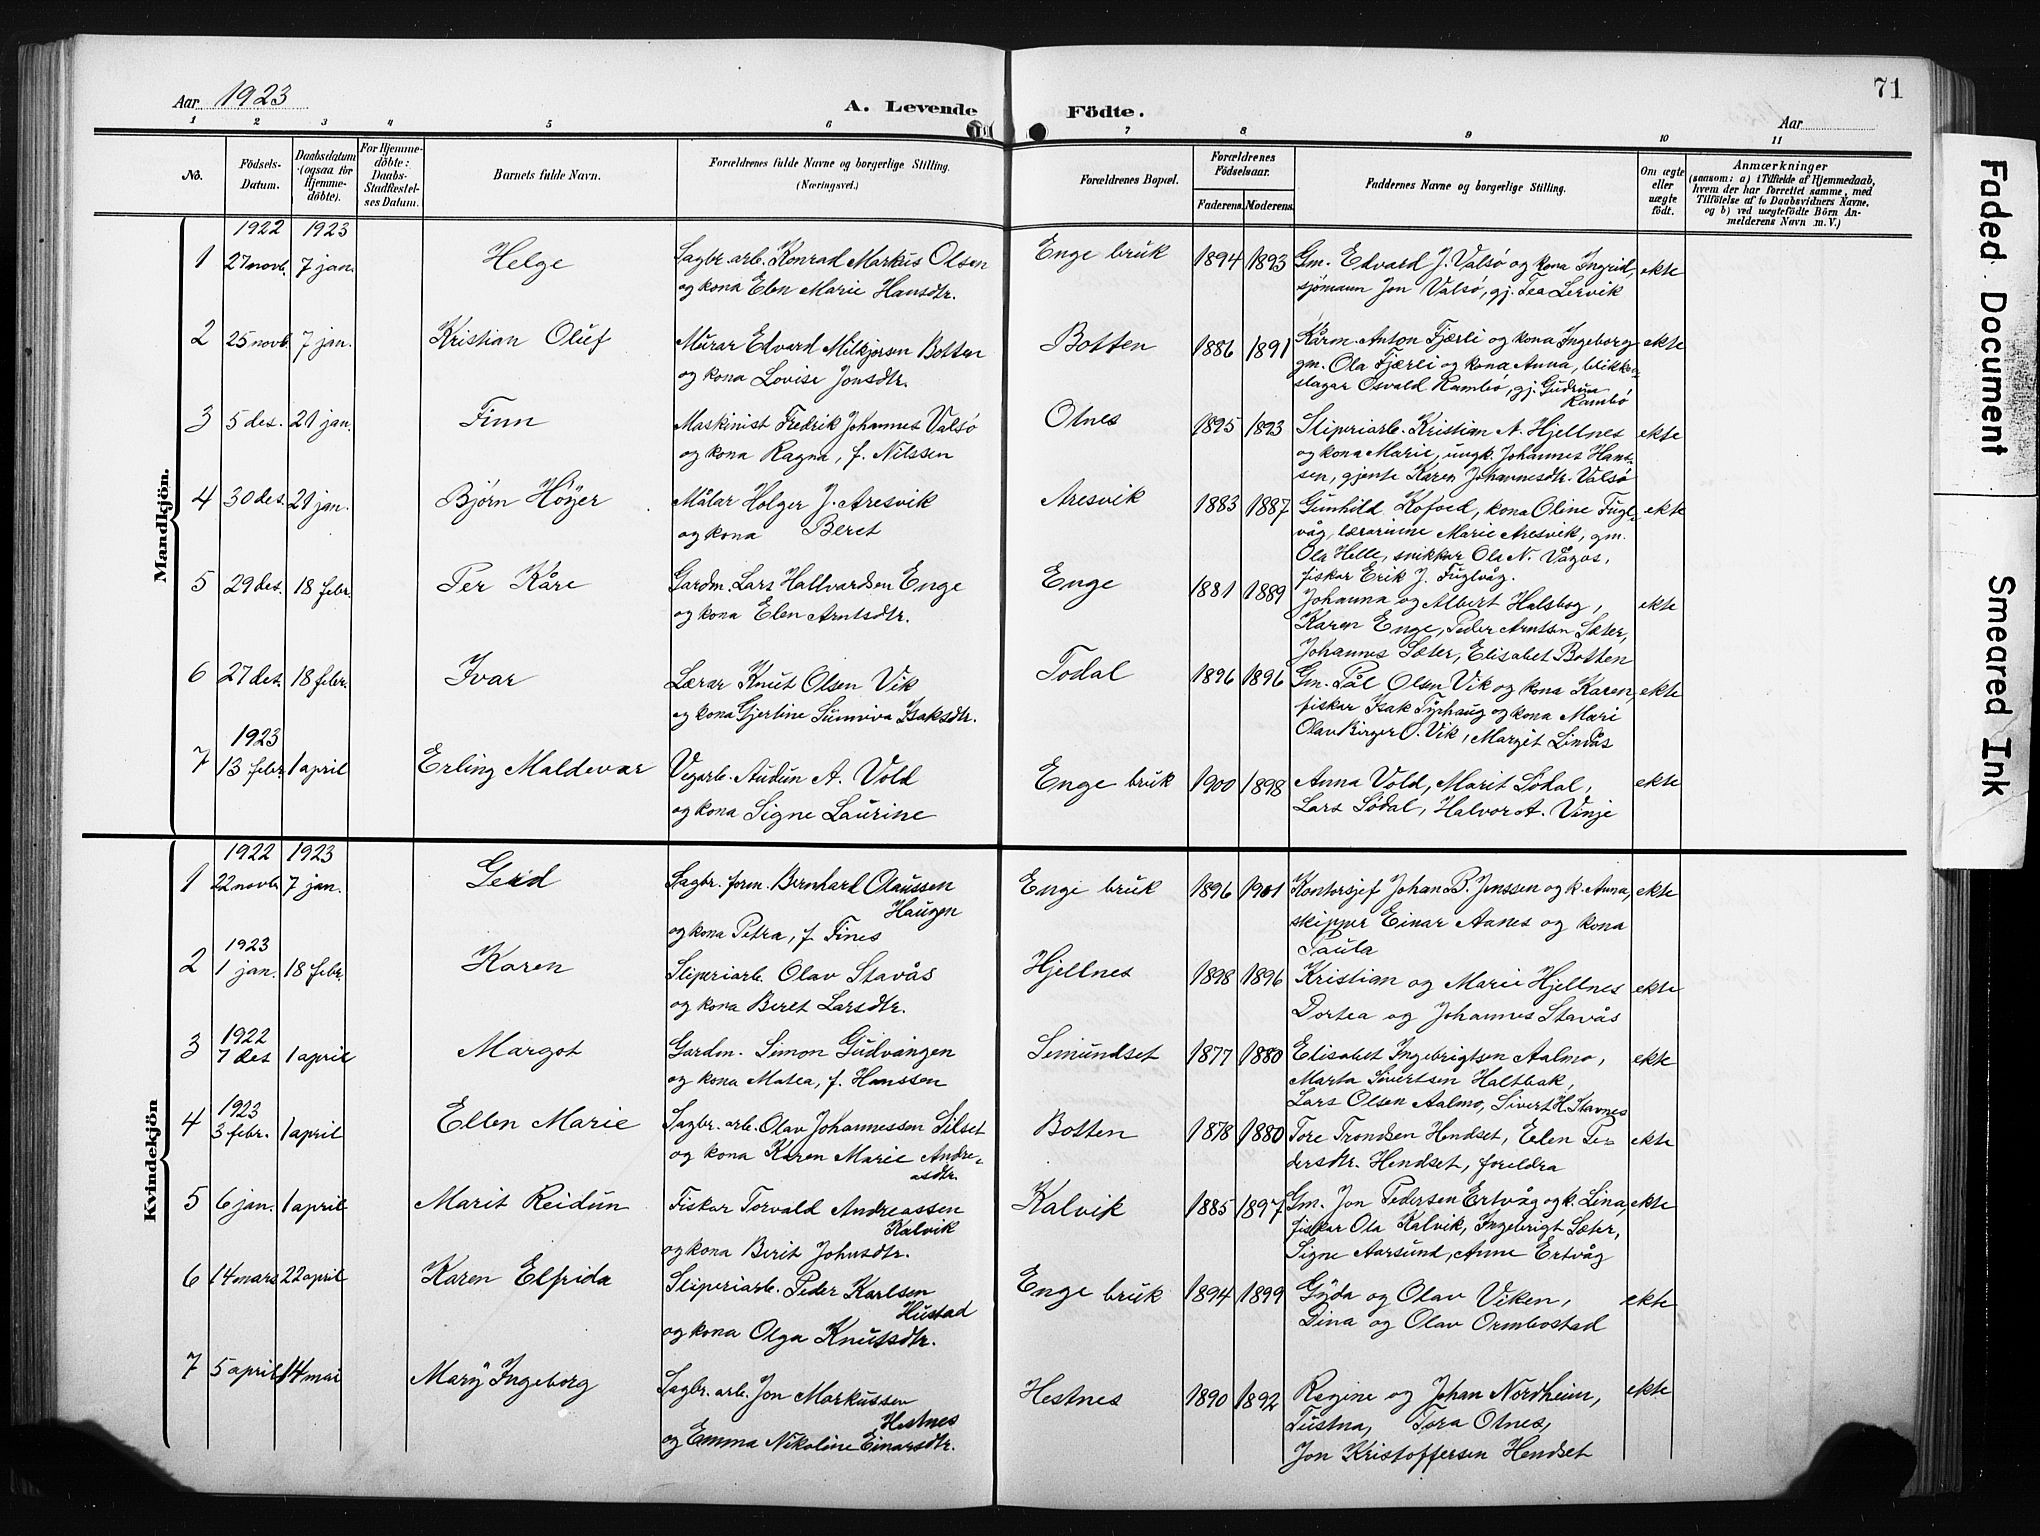 Aar 1923
A. Levende
Födte.
71
Aar
1 2 3 4 5 6 7 8 9 10 11
No.
Födsels-Datum.
Daabsdatum (ogsaa for Hjemme-döbte).
For Hjemme-döbte: Daabs-Stadfæstel-ses Datum.
Barnets fulde Navn.
Forældrenes fulde Navne og borgerlige Stilling. (Næringsvei.)
Forældrenes Bopæl.
Forældrenes Födselsaar.
Faderens. Moderens.
Faddernes Navne og borgerlige Stilling.
Om ægte eller uægte födt.
Anmærkninger
(saasom: a) i Tilfælde af Hjemmedaab,
hvem der har forrettet samme, med
Tilföielse af to Daabsvidners Navne,
og b) ved uægtefödte Börn An-
melderens Navn m. V.)
Mandkjön.
1922 1923
1 27 novb. 7 jan. Helge Sagbr. arb. Konrad Markus Olsen Enge bruk 1894 1893 Gm. Edvard J. Valsø og kona Ingrid, ekte
og kona Elen Marie Hansdtr. sjømann Jon Valsø, gj. Tea Lervik
2 25 novb. 7 jan. Kristian Oluf Murar Edvard Milkjorsen Botten Botten 1886 1891 Kårm. Anton Fjærli og kona Ingeborg ekte
og kona Lovise Jonsdtr. gm. Ola Fjærli og kona Anna, blikken-
slagar Osvald Rambø, gj. Gudrun
Rambø
3 5 des. 21 jan. Finn Maskinist Fredrik Johannes Valsø Otnes 1895 1893 Sliperiarb. Kristian N. Hjellnes ekte
og kona Ragna, f. Nilssen og kona Marie, ungk. Johannes Han-
sen, gjente Karen Johannesdtr. Valsø
4 30 des. 21 jan. Bjørn Höyer Målar Holger J. Aresvik Aresvik 1883 1887 Gunhild Kofoed, kona Oline Fugl- ekte
og kona Beret våg, lærarinne Marie Aresvik, gm.
Ola Helle, snikkar Ola N. Vågos,
fiskar Erik J. Fuglvåg.
5 29 des. 18 febr. Per Kåre Gardm. Lars Hallvardsen Enge Enge 1881 1889 Johanna og Albert Halsbog, ekte
og kona Elen Arntsdtr. Karen Enge, Peder Arntsen Sæter,
Johannes Sæter, Elisabet Botten
6 27 des. 18 febr. Ivar Lærar Knut Olsen Vik Todal 1896 1896 Gm. Pål Olsen Vik og kona Karen, ekte
og kona Gjertine Sunniva Isaksdtr. fiskar Isak Tyrhaug og kona Mæri
Olav Birger O. Vik, Margit Lindås
1923
7 13 febr. 1 april Erling Maldevar Vegarb. Audun A. Vold Enge bruk 1900 1898 Anna Vold, Marit Södal, ekte
og kona Signe Laurine Lars Södal, Halvor A. Vinje
Kvindekjön
1922 1923
1 22 novb. 7 jan. Gerd Sagbr. form. Bernhard Olaussen Enge bruk 1896 1901 Kontorsjef Johan B. Jenssen og k. Anna, ekte
Haugen skipper Einar Aanes og kona
og kona Petra, f. Fines Paula
1923
2 1 jan. 18 febr. Karen Sliperiarb. Olav Stavås Hjellnes 1898 1896 Kristian og Marie Hjellnes ekte
og kona Beret Larsdtr. Dortea og Johannes Stavås
1922
3 7 des 1 april Margot Gardm. Simon Gudvangen Semundset 1877 1880 Elisabet Ingebrigtsen Aalmo, ekte
og kona Matea, f. Hanssen Marta Sivertsen Haltbak,
Lars Olsen Aalmo, Sivert H. Stavnes
1923
4 3 febr. 1 april Ellen Marie Sagbr. arb. Olav Johannessen Silset Botten 1878 1880 Tore Trondsen Hendset, Elen Pe- ekte
og kona Karen Marie Andre- dersdtr. Hendset, foreldra
asdtr.
5 6 jan. 1 april Marit Reidun Fiskar Torvald Andreassen Kalvik 1885 1897 Gm. Jon Pedersen Ertvåg og k. Lina, ekte
Kalvik fiskar Ola Kalvik, Ingebrigt Sæter,
og kona Berit Johnsdtr. Signe Aarsund, Anne Ertvåg
6 14 mars 22 april Karen Elfrida Sliperiarb. Peder Karlsen Enge bruk 1894 1899 Gyda og Olav Viken, ekte
Hustad Dina og Olav Ormbostad
og kona Olga Knutsdtr.
7 5 april 14 mai Mary Ingeborg Sagbr. arb. Jon Markussen Hestnes 1890 1892 Regine og Johan Nordheim, ekte
Hestnes Tustna, Tora Otnes,
og Emma Nikoline Einarsdtr. Jon Kristoffersen Hendset
Faded Document
Smeared Ink